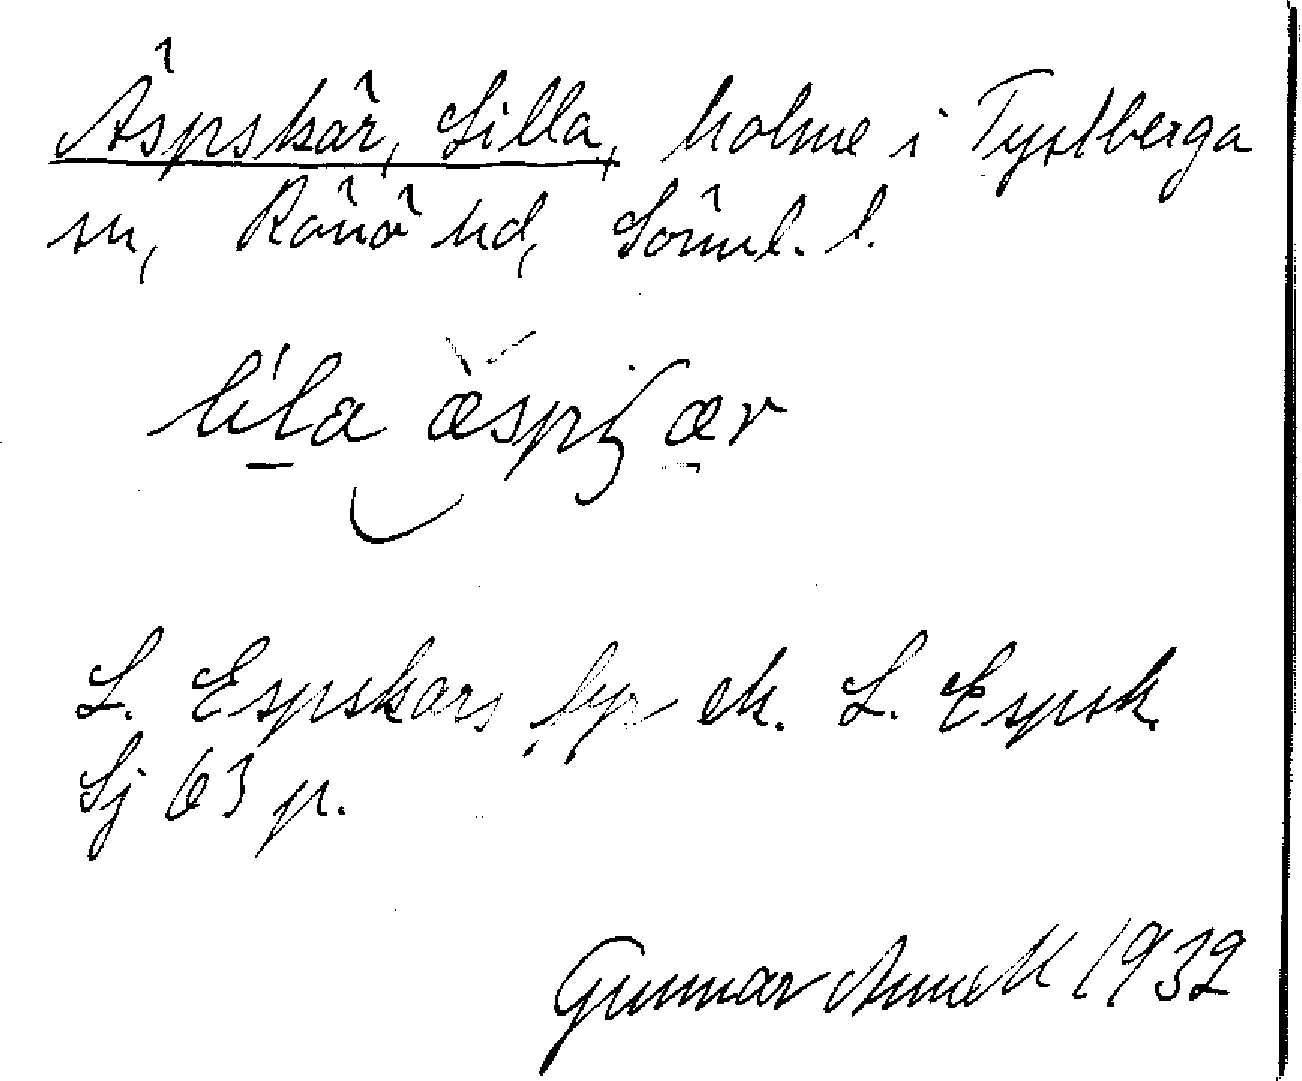 Äspskär, Lilla, holme i Tystberga
sn, Rönö hd, Söml. l.
lila äspʃær
L. Espskärs fyr ek. L. Espsk.
Sj 63 p.
Gunnar 1932